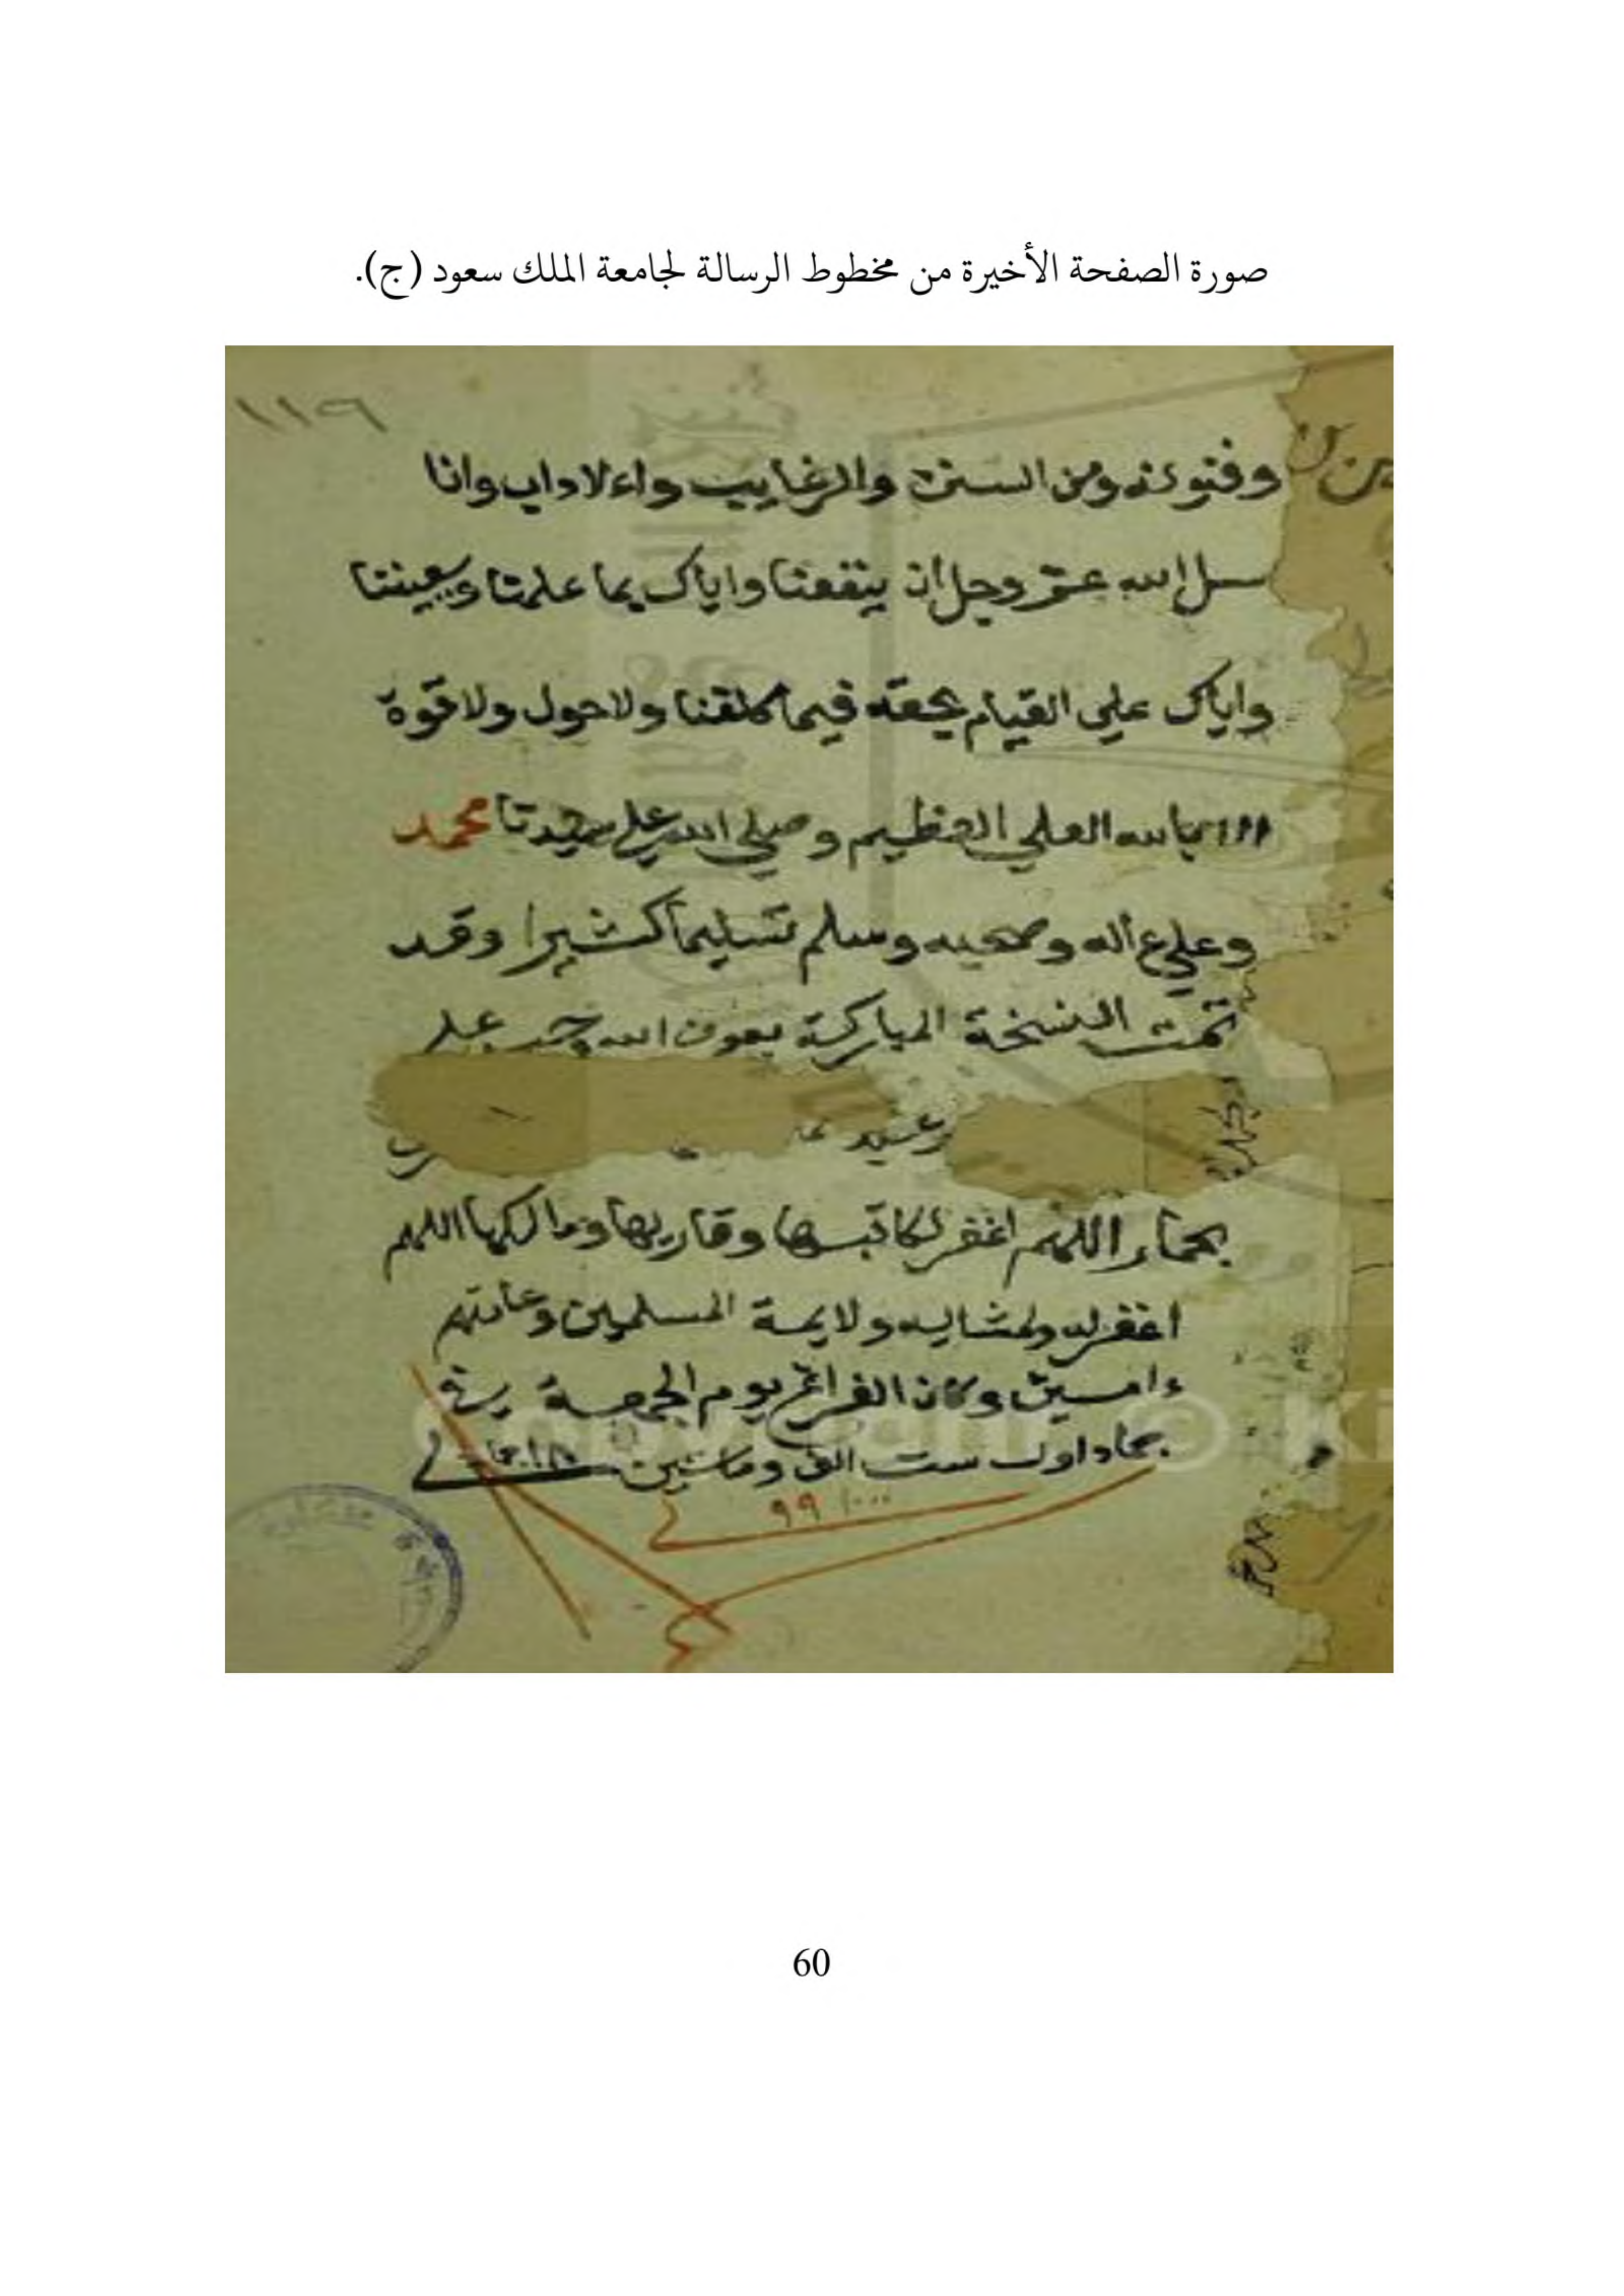 صورة الصفحة الأخيرة من مخطوط الرسالة لجامعة الملك سعود (ج).
١١٦
وفنونه ومن السنن والرغايب والاداب وانا
سل الله عز وجل ان ينفعنا واياك بما علمنا ويعيننا
واياك علي القيام بحقه فيما كلفنا ولا حول ولا قوة
الا بالله العلي العظيم وصلي الله علي سيدنا محمد
وعلي ءاله وصحبه وسلم تسليما كثيرا وقد
تمت النسخة المباركة بعون الله
اللهم اغفر لكاتبها وقاريها ومالكها اللهم
اغفر له ولمشايه ولايمة المسلمين وعامتهم
ءامين وكان الفراغ يوم الجمعة
جماد اول ست الف وماتين
٩٩
60